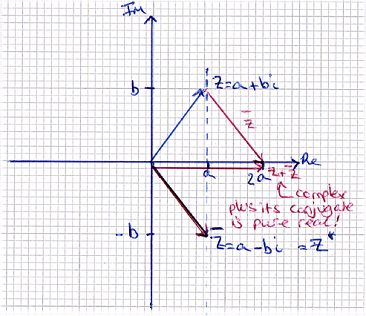 Im
b
z=a+bi
z̅
Re
a
2a
z+z̅
complex
plus its conjugate
is pure real!
-b
z̅=a-bi = z*